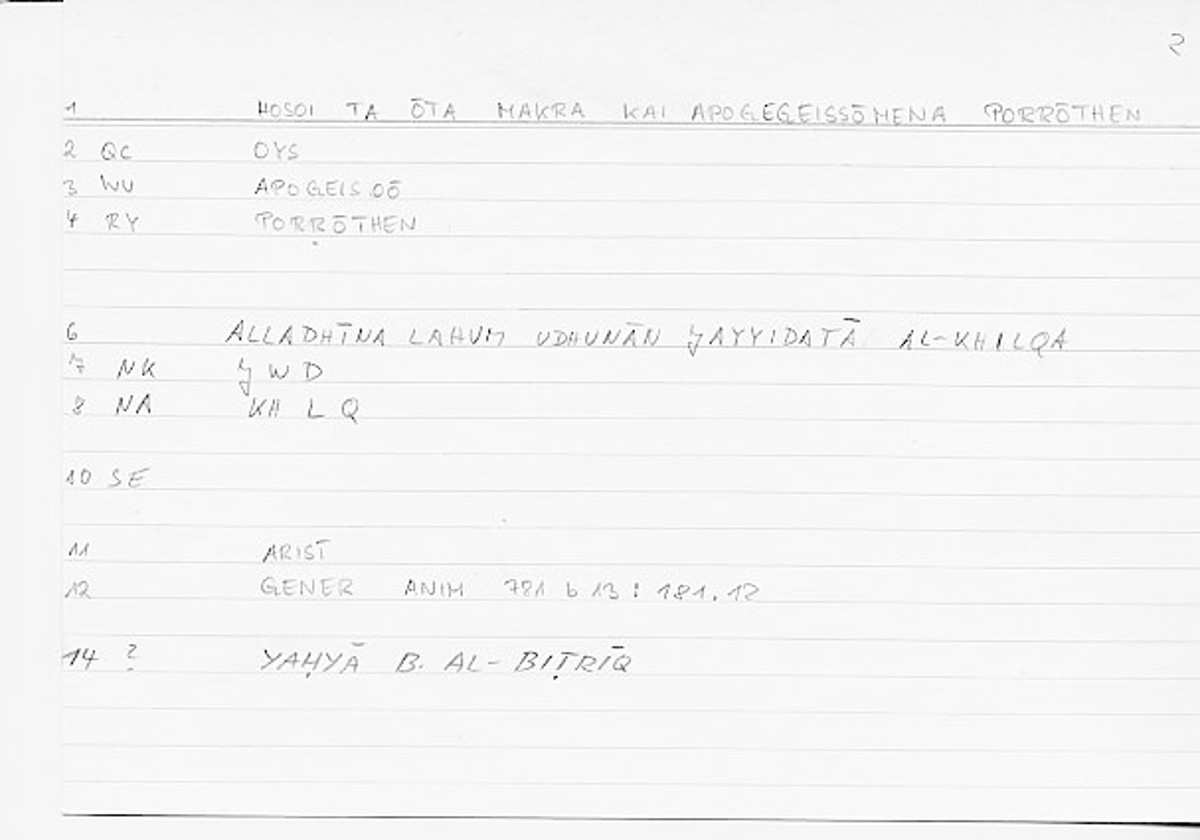 2
1 HOSOI TA ŌTA MAKRA KAI APOGEGEISSŌMENA PORRŌTHEN
2 QC OYS
3 WU APOGEISOŌ
4 RY PORRŌTHEN
6 ALLADHĪNA LAHUM UDHUNĀN JAYYIDATĀ AL-KHILQA
7 NK J W D
8 NA KH L Q
10 SE
11 ARIST
12 GENER ANIM 781 b 13 : 181.12
14 ? YAḤYĀ B. AL-BIṬRĪQ